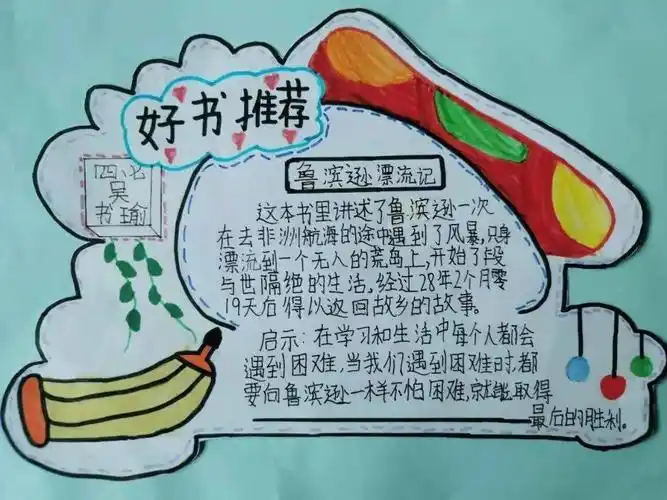 好书推荐
四.七
吴
书瑜
鲁滨逊漂流记
这本书里讲述了鲁滨逊一次
在去非洲航海的途中遇到了风暴,只身
漂流到一个无人的荒岛上,开始了段
与世隔绝的生活。经过28年2个月零
19天后得以返回故乡的故事。
启示:在学习和生活中每个人都会
遇到困难,当我们遇到困难时,都
要向鲁滨逊一样不怕困难,就能取得
最后的胜利。